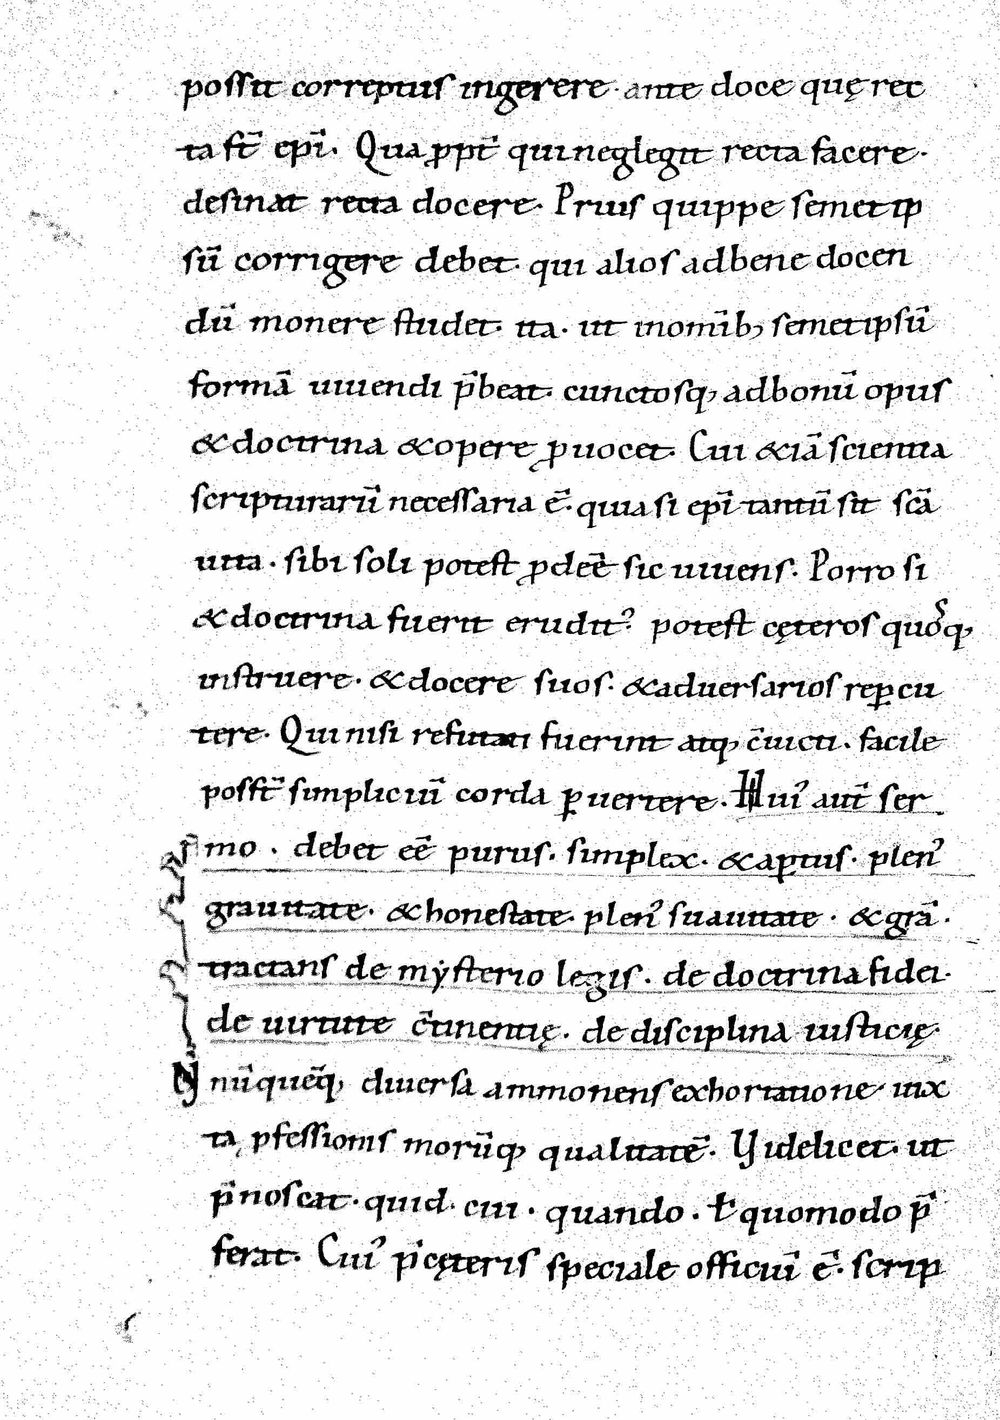 possit correptus ingerere· ante doce quę rec
ta st̄ ep̄i. Qua ꝓpt̄ qui neglegit recta facere·
desinat recta docere· Prius quippe semet ip
sū corrigere debet· qui alios ad bene docen
dū monere studet· ita· ut in om̄ib; semet ipsū
formā uiuendi p̄beat· cunctosq; ad bonū opus
& doctrina & opere ꝓuocet· Cui & iā scientia
scripturarū necessaria ē· quia si ep̄i tantū sit sc̄a
uita· sibi soli potest ꝓdeē sic uiuens· Porro si
& doctrina fuerit erudit᾽ potest cęteros quoq;
instruere· & docere suos· & aduersarios reꝑcu
tere· Qui nisi refutati fuerint atq; c̄uicti· facile
posst̄ simpliciū corda ꝑuertere· Hui᾽ aut̄ ser
mo· debet eē purus· simplex· & aptus· plen᾽
grauitate· & honestate· plen᾽ suauitate· & grā·
tractans de mẏsterio legis· de doctrina fidei·
de uirtute c̄tinentię· de disciplina iusticię·
nū quēq; diuersa ammonens exhortatione· iux
ta ꝓfessionis morūq; qualitatē· Videlicet· ut
p̄noscat· quid· cui· quando· ł quomodo p̄
ferat· Cui᾽ p̄ cęteris speciale officiū ē· scrip